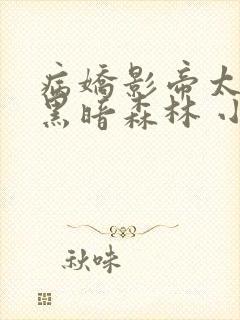 病嬌影帝太
黑暗森林 小
秋味